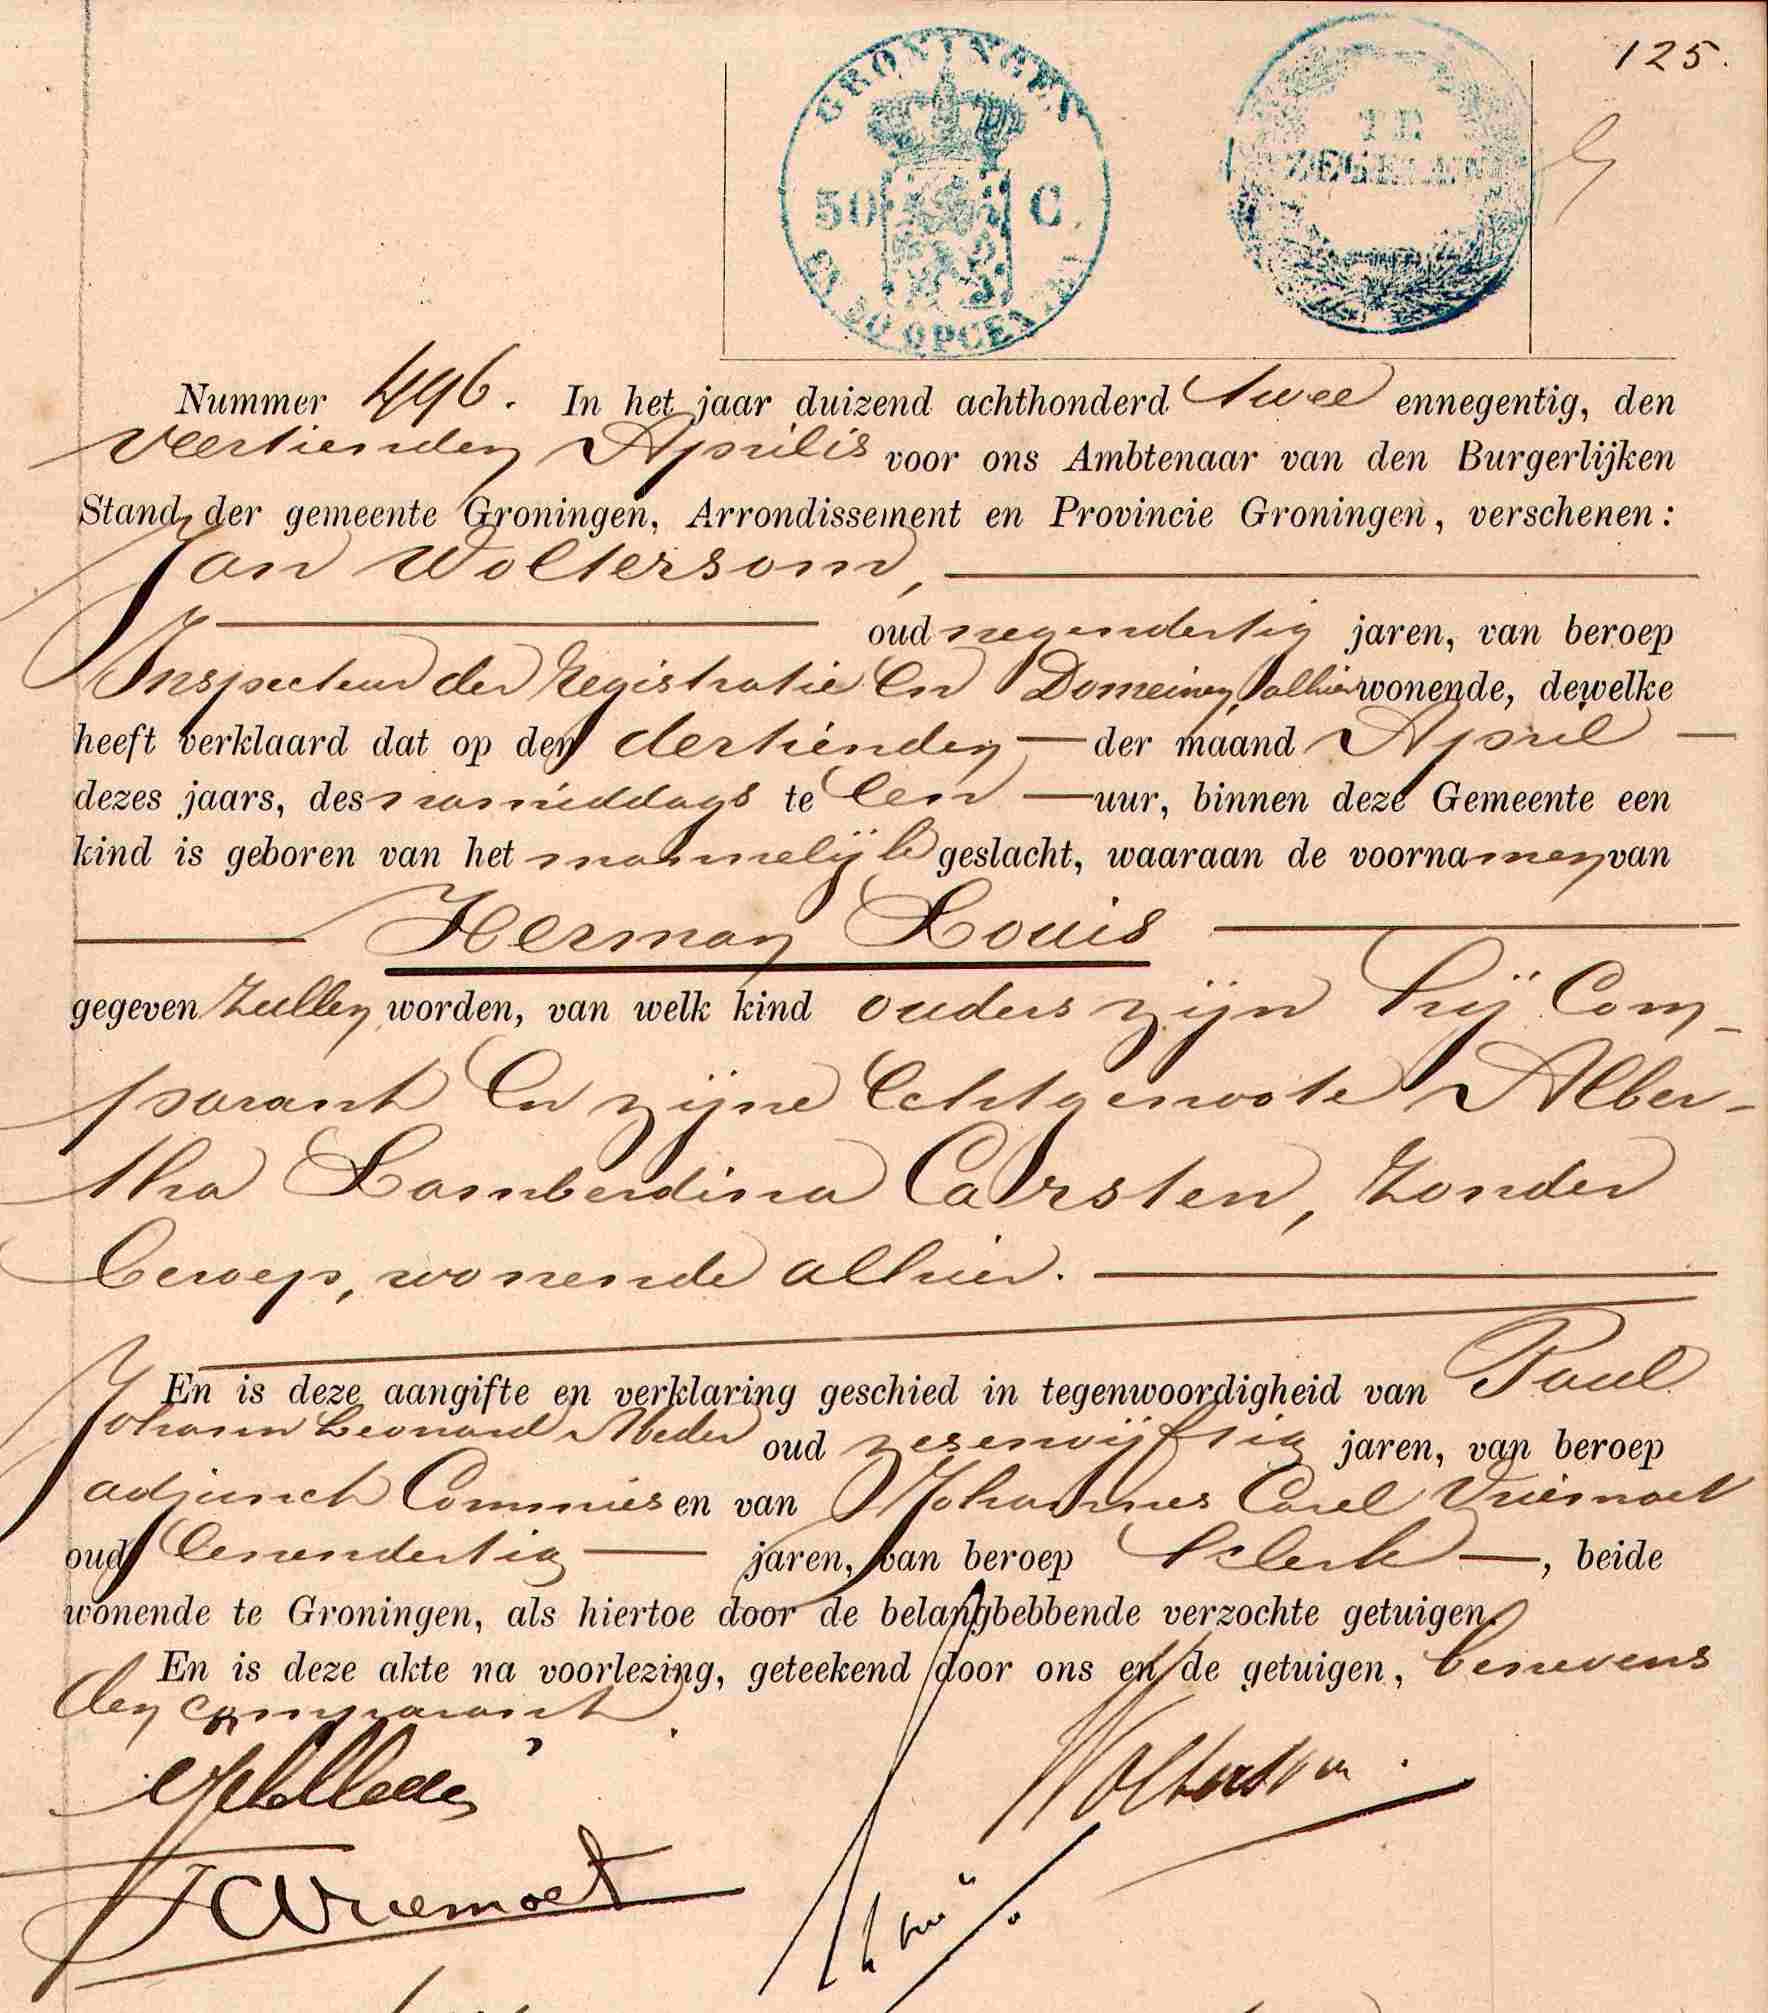 125.
GRONINGEN
50 C.
EN 50 OPCENTEN
Nummer 496. In het jaar duizend achthonderd twee ennegentig, den
veertienden Aprilis voor ons Ambtenaar van den Burgerlijken
Stand der gemeente Groningen, Arrondissement en Provincie Groningen, verschenen:
Jan Woltersom,
oud negendertig jaren, van beroep
Inspecteur der Registratie en Domeinen, alhier wonende, dewelke
heeft verklaard dat op den dertienden der maand April
dezes jaars, des namiddags te een uur, binnen deze Gemeente een
kind is geboren van het mannelijk geslacht, waaraan de voornamen van
Herman Louis
gegeven zullen worden, van welk kind ouders zijn hij Com-
parant en zijne Echtgenoote Alber-
tha Lamberdina Carsten, zonder
beroep, wonende alhier.
En is deze aangifte en verklaring geschied in tegenwoordigheid van Paul
Johann Leonard Meder oud zesenvijftig jaren, van beroep
adjunct Commies en van Johannes Carel Vriemoet
oud eenendertig jaren, van beroep klerk, beide
wonende te Groningen, als hiertoe door de belangbebbende verzochte getuigen.
En is deze akte na voorlezing, geteekend door ons en de getuigen, benevens
den comparant
Woltersom.
JCVriemoet